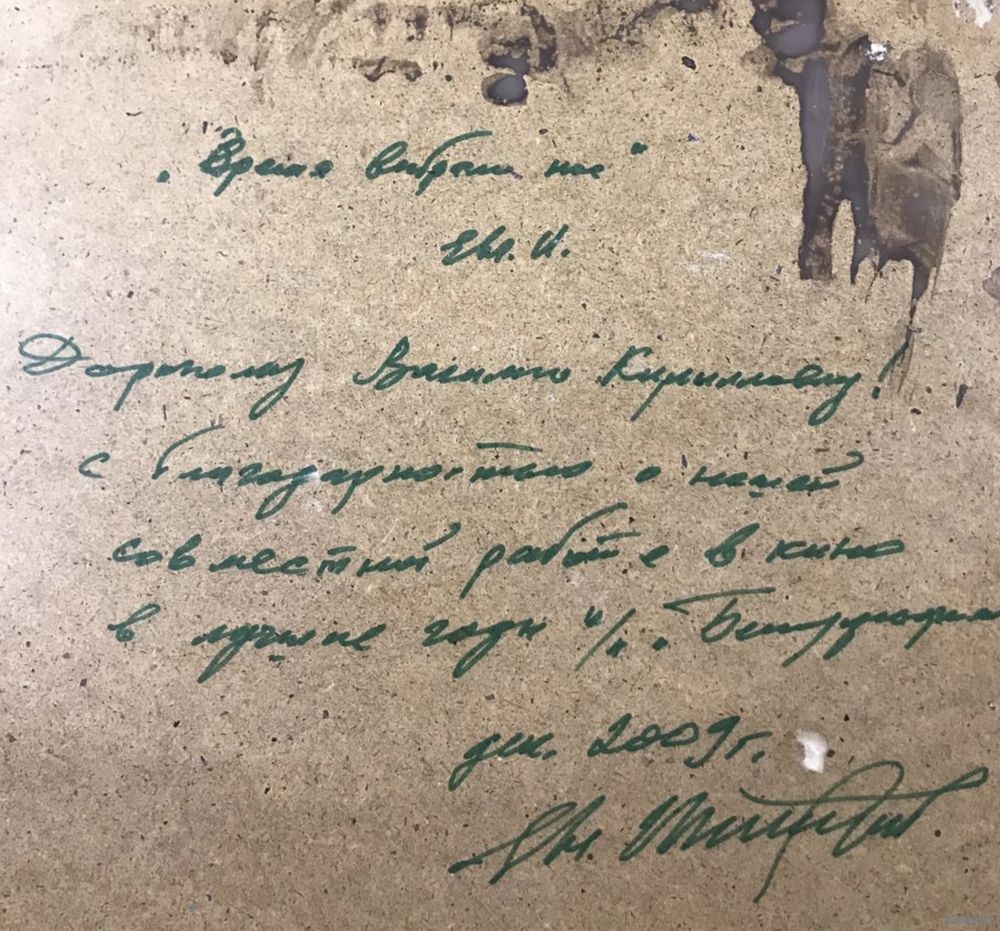 „Время выбрало нас"
Евг. И.
Дорогому Василию Кирилловичу!
с благодарностью о нашей
совместной работе в кино
в лучшие годы к/с. „Беларусьфильм
дек. 2009 г.
Евг.